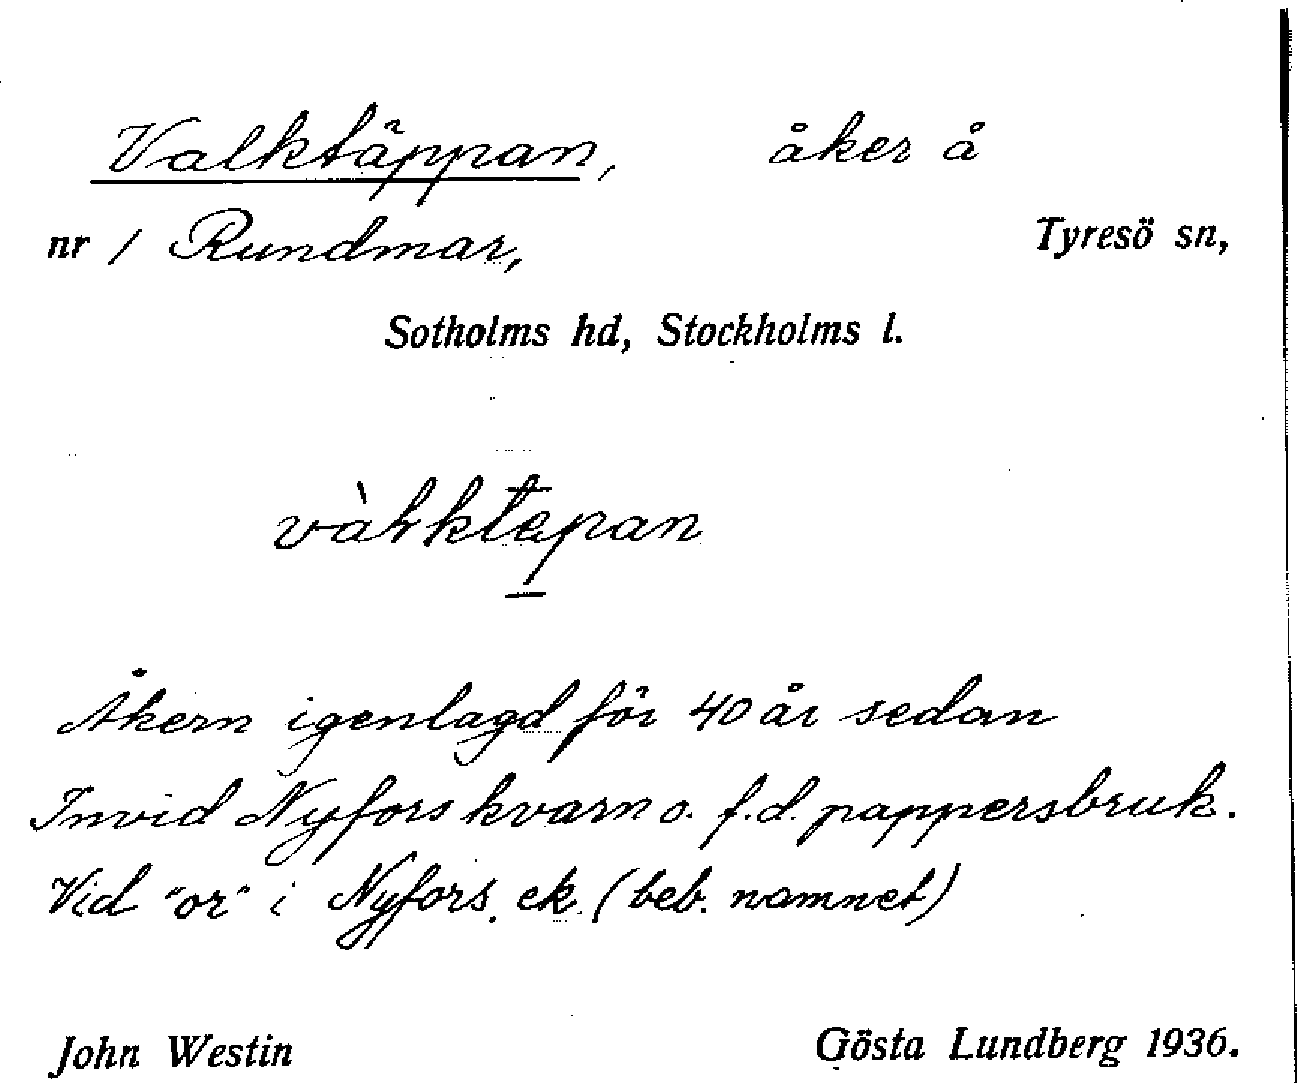 Valktäppan, åker å
nr 1 Rundmar, Tyresö sn,
Sotholms hd, Stockholms l.
Åkern igenlagd för 40 år sedan
Invid Nyfors kvarn o. f.d. pappersbruk.
Vid "or" i Nyfors. ek. (beb. namnet)
John Westin Gösta Lundberg 1936.